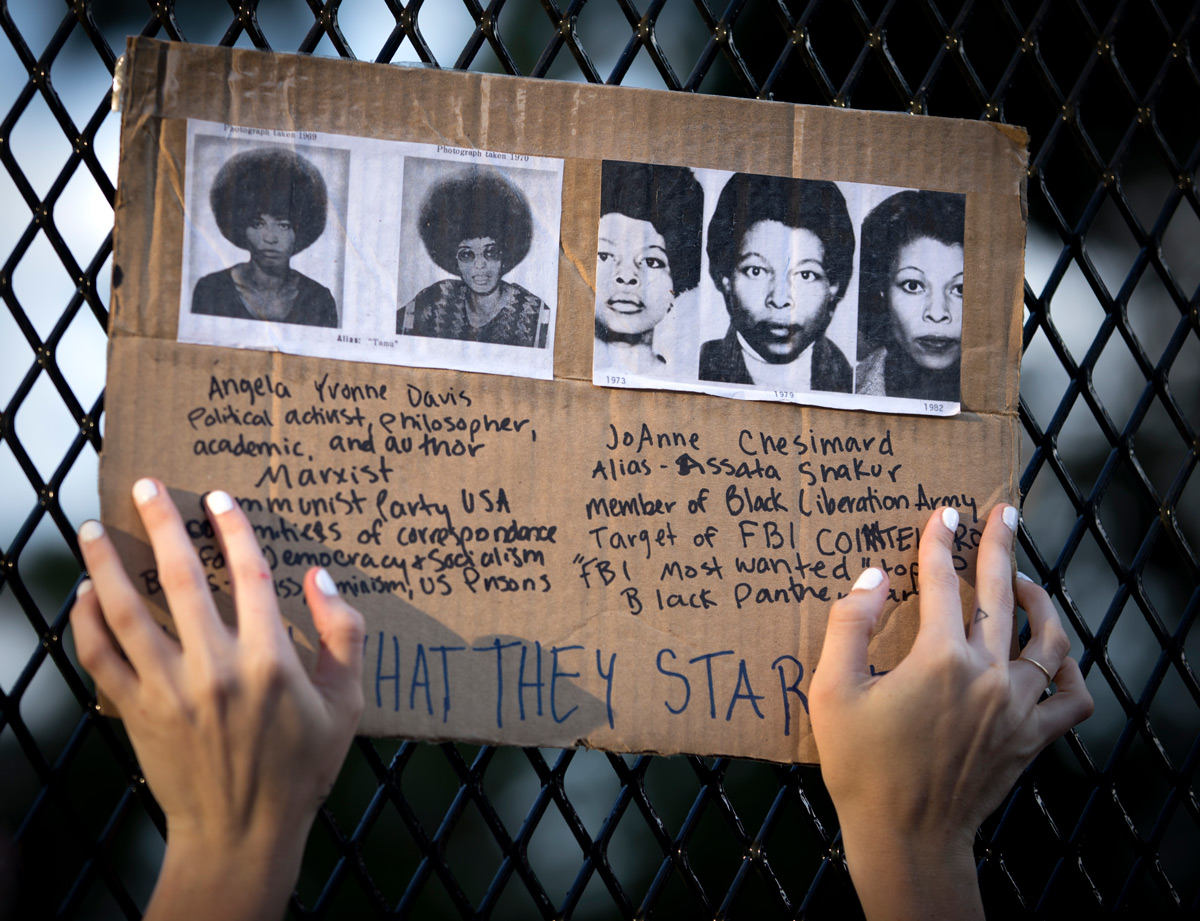 Photograph taken 1969
Photograph taken 1970
Alias: "Tamu"
1973
1979
1982
Angela Yvonne Davis
Political activist, philosopher,
academic, and author
Marxist
mmunist Party USA
of correspondance
Democracy & Socialism
US Prisons
JoAnne Chesimard
Alias - Assata Shakur
member of Black Liberation Army
Target of FBI COINTEL RO
"FBI Most wanted" top
Black Panther
HAT THEY STAR